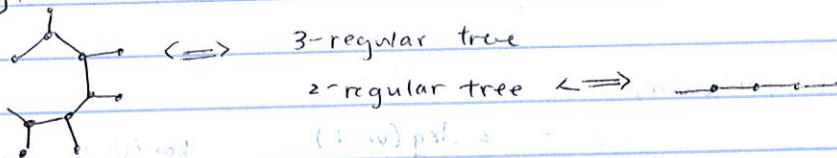 <=> 3-regular tree
2-regular tree <=>